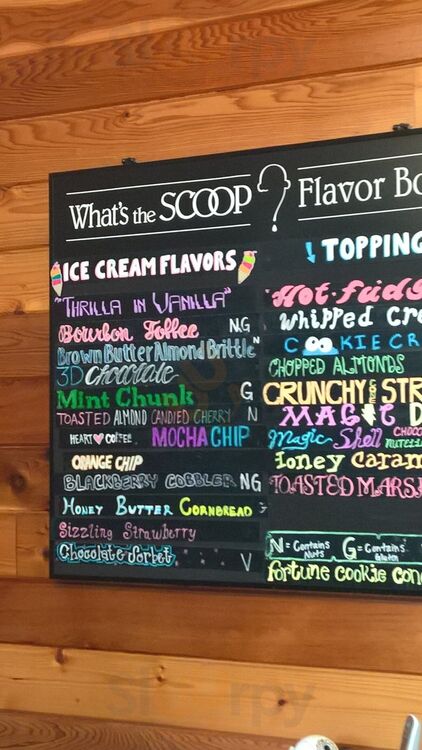 What's the SCOOP
Flavor Bo
ICE CREAM FLAVORS
"THRILLA IN VANILLA"
Bourbon Toffee NG
Brown Butter Almond Brittle N
3D chocolate
Mint Chunk G
TOASTED ALMOND CANDIED CHERRY N
HEART COFFEE MOCHA CHIP
ORANGE CHIP
BLACKBERRY COBBLER NG
HONEY BUTTER CORNBREAD
Sizzling Strawberry
Chocolate Sorbet V
TOPPING
Hot-fudg
Whipped Cre
COOKIE CR
CHOPPED ALMONDS
CRUNCHY STR
MAGIC D
Magic Shell CHOCO NUTELL
Honey Caram
TOASTED MARSH
N = Contains Nuts G = Contains Gluten
Fortune Cookie Con